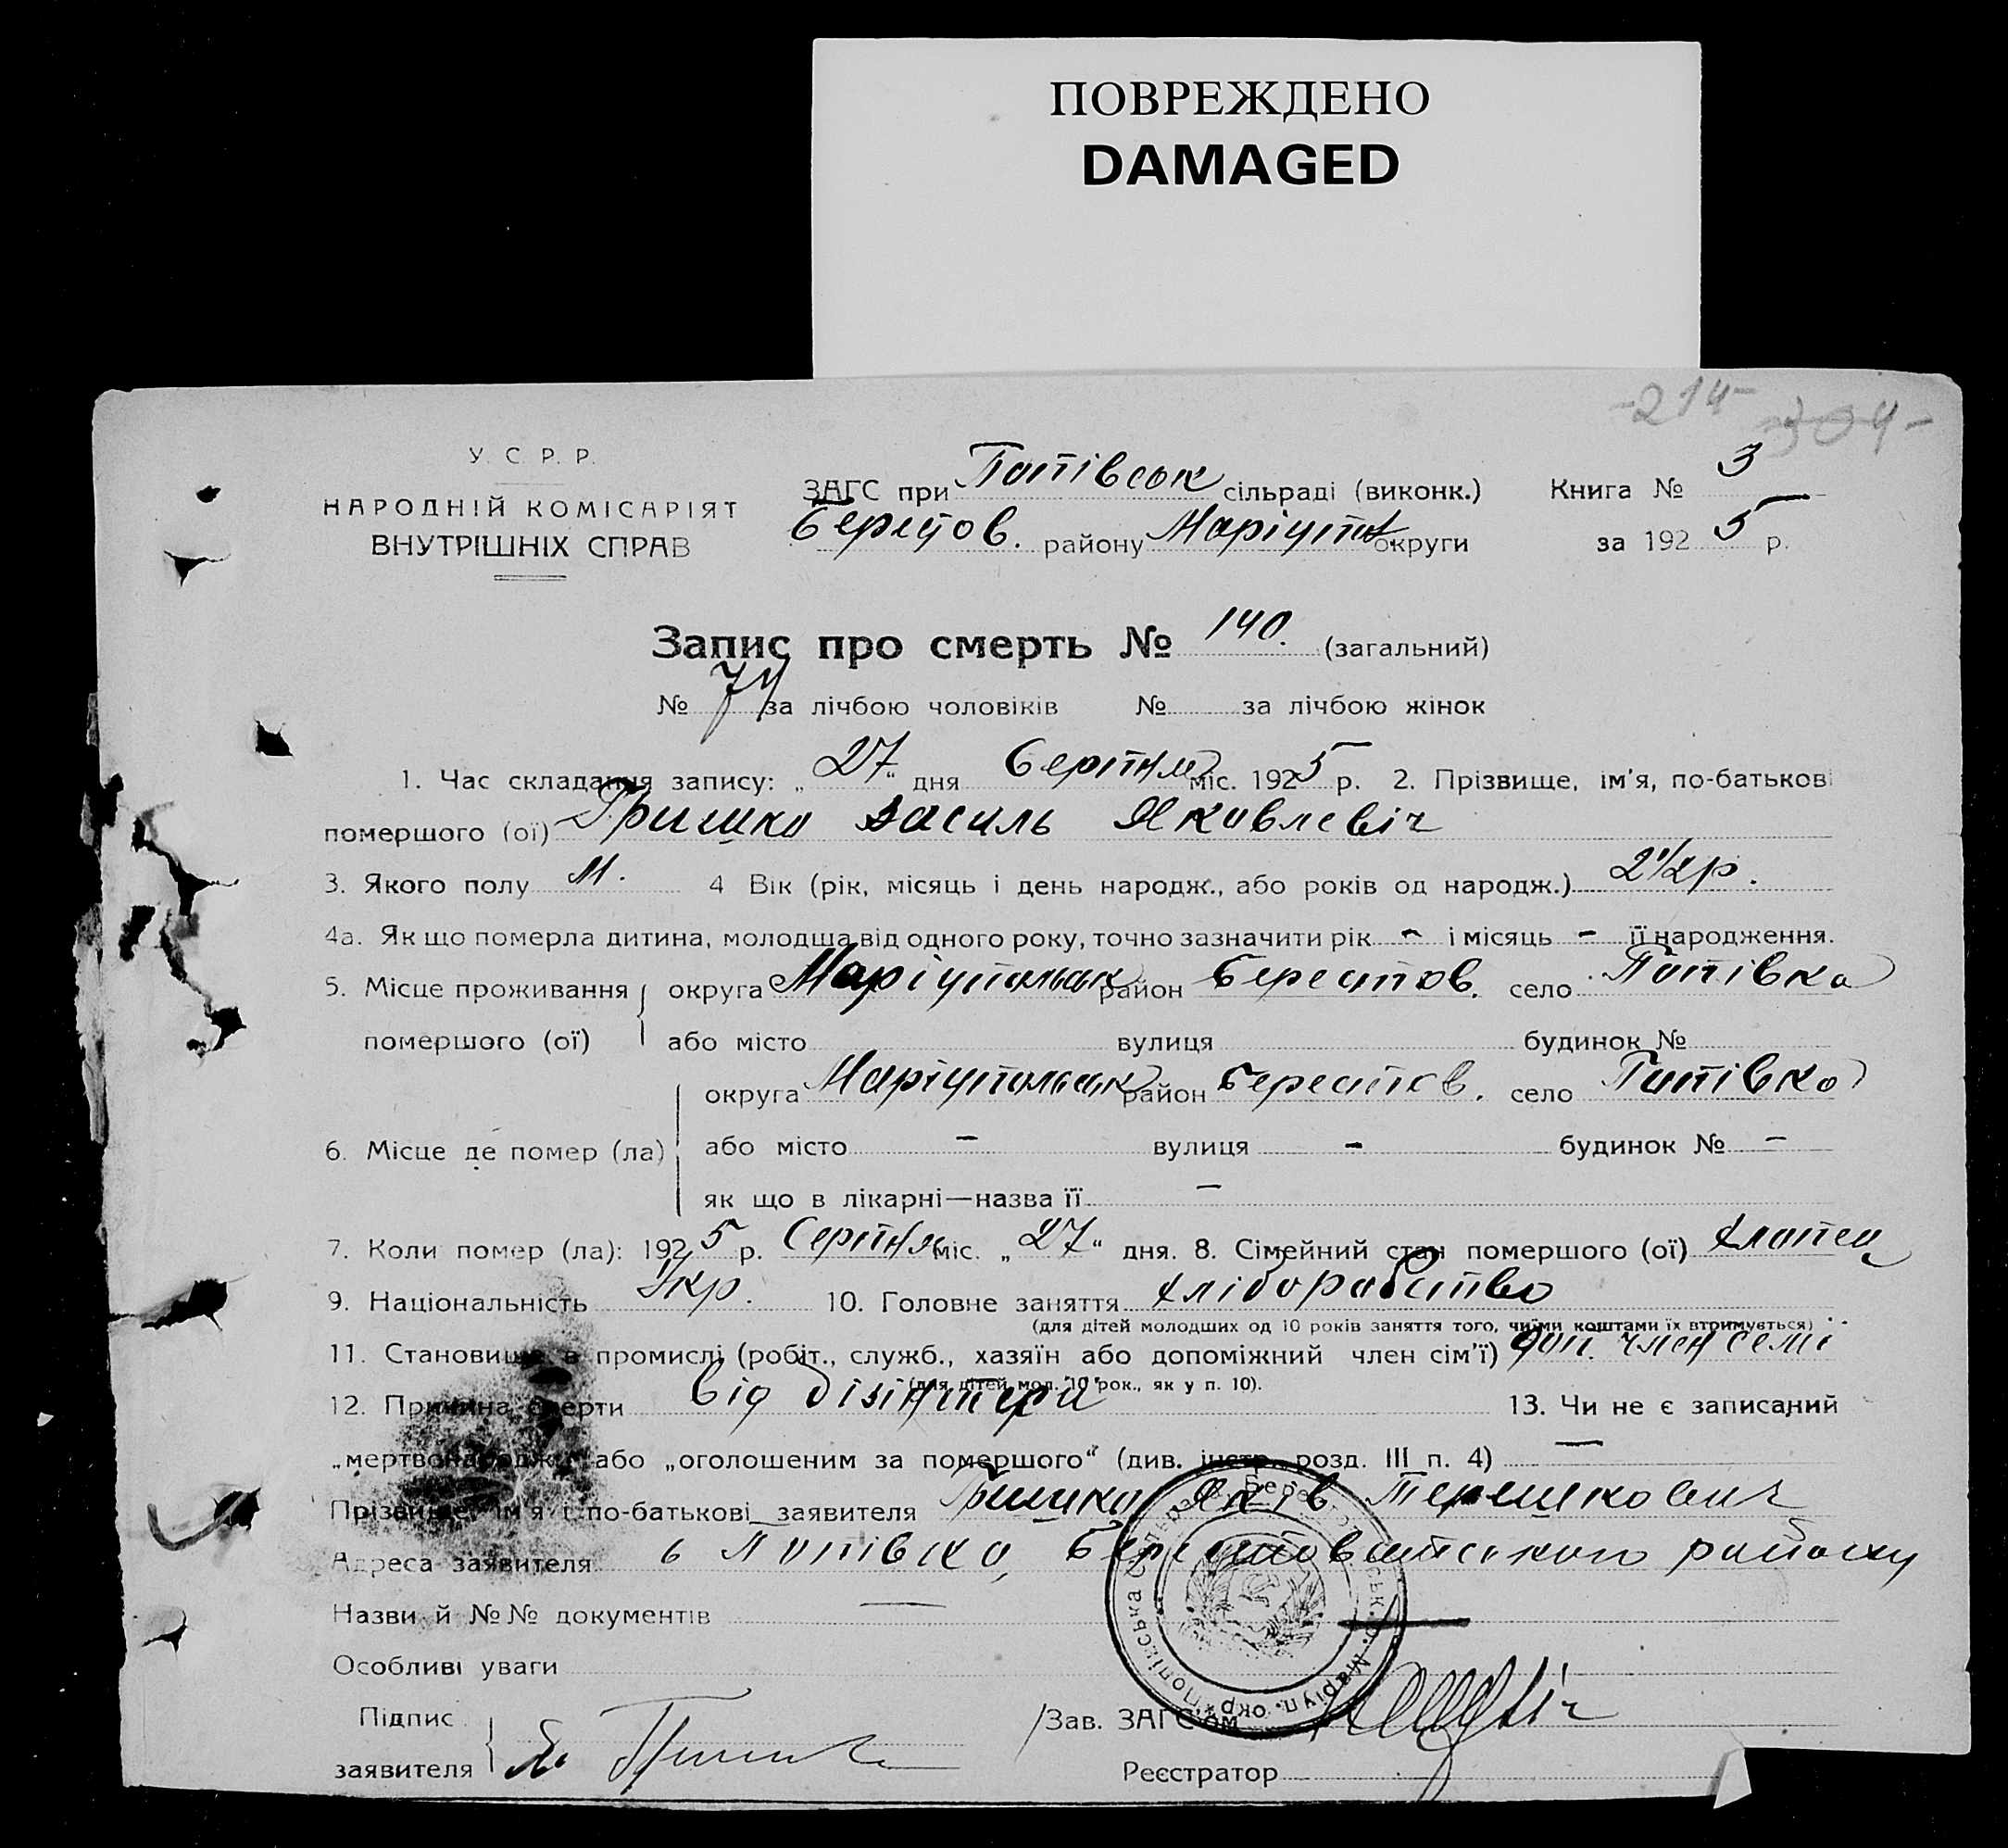 ПОВРЕЖДЕНО
DAMAGED
-214- -304-
У. С. Р. Р.
НАРОДНІЙ КОМІСАРІЯТ
ВНУТРІШНІХ СПРАВ
ЗАГС при Попівськ сільраді (виконк.) Книга № 3
Берестов. району Маріупол. округи за 1925 р.
Запис про смерть № 140. (загальний)
№ 74 за лічбою чоловіків № за лічбою жінок
1. Час складання запису: „27“ дня Серпня міс. 1925 р. 2. Прізвище, ім'я, по-батькові
помершого (ої) Гришко Василь Яковлевіч
3. Якого полу М. 4 Вік (рік, місяць і день народж., або років од народж.) 2 1/2 р.
4а. Як що померла дитина, молодша від одного року, точно зазначити рік - і місяць - її народження.
5. Місце проживання помершого (ої) округа Маріупольськ район Берестов. село Попівка
або місто вулиця будинок №
6. Місце де помер (ла) округа Маріупольськ район Берестов. село Попівка
або місто - вулиця - будинок № -
як що в лікарні—назва її -
7. Коли помер (ла): 1925 р. Серпня міс. „27“ дня. 8. Сімейний стан помершого (ої) хлопец
9. Національність Укр. 10. Головне заняття хліборобство
(для дітей молодших од 10 років заняття того, чиїми коштами їх втримується)
11. Становище в промислі (робіт., служб., хазяїн або допоміжний член сім'ї) доп. член семі
(для дітей мол. 10 рок., як у п. 10).
12. Причина смерти від дізінтерії 13. Чи не є записаний
„мертвонароджен.“ або „оголошеним за помершого“ (див. інстр. розд. III п. 4) —
Прізвище, ім'я і по-батькові заявителя Гришко Яків Терешкович
Адреса заявителя с Попівка, Берестов району
Назви й №№ документів —
Особливі уваги
Підпис заявителя Я. Гришко
Зав. ЗАГС'ом
Реєстратор
Попівська Сільрада Берестовськ. р. Маріуп. окр.